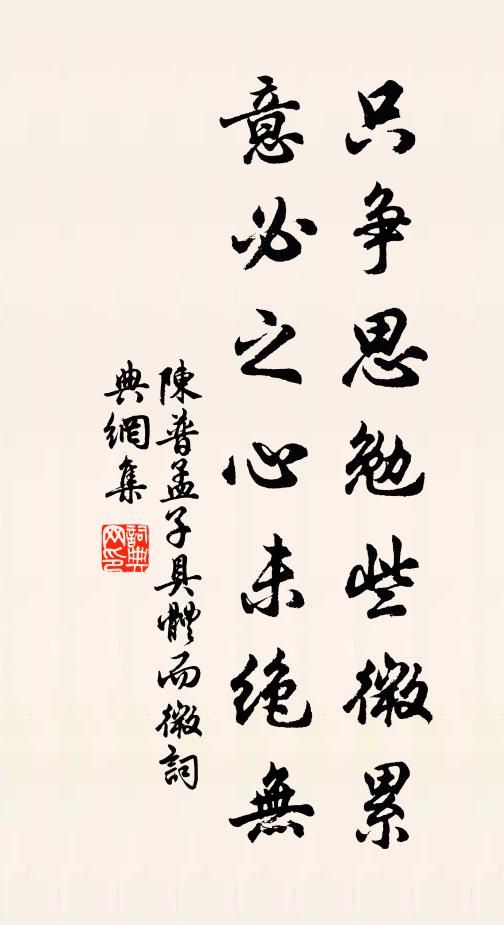 只争思勉些微累
意必之心未绝無
陳普孟子具體而微詞
典網集
詞典网印